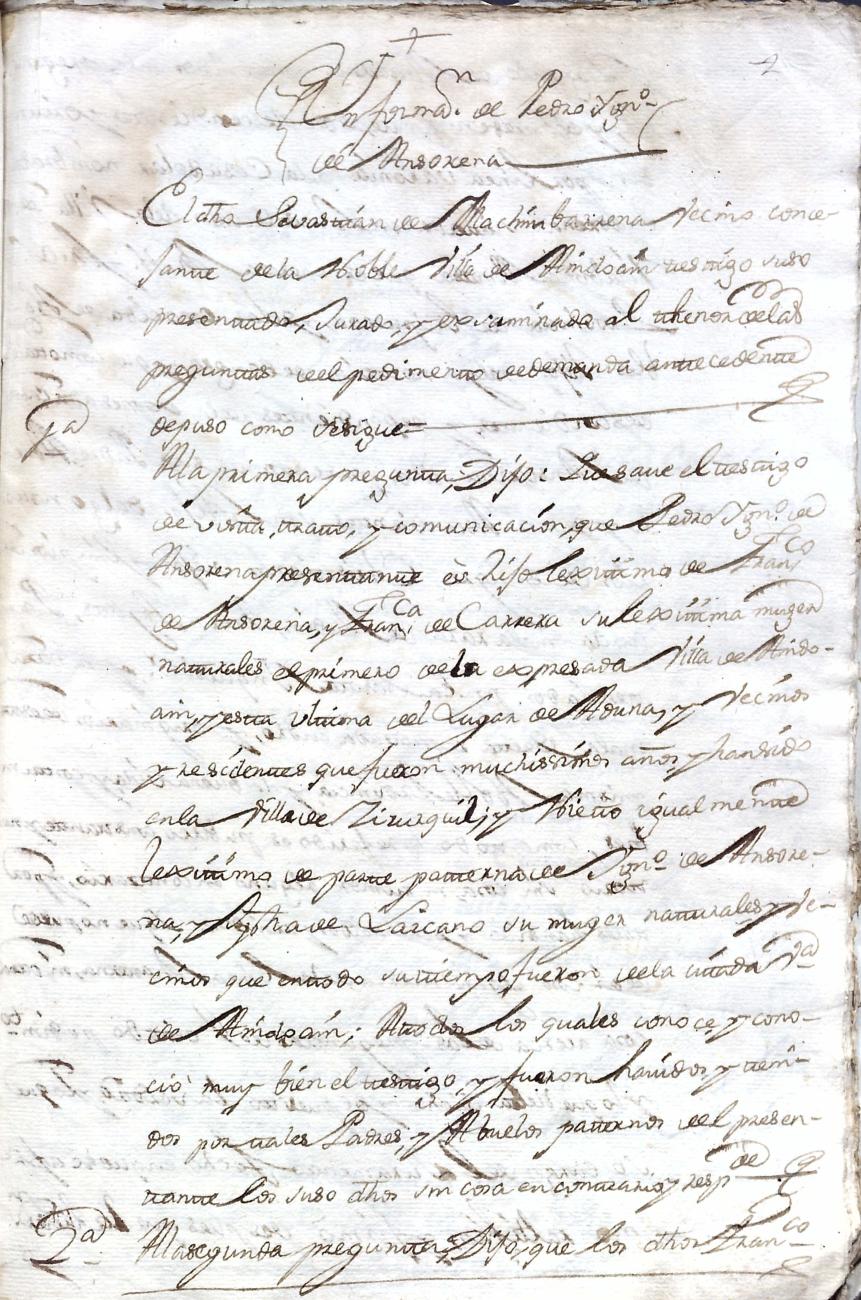 4
Informaon. de Pedro Ygno.
de Ansorena
El dho Sevastian de Machinbarrena Vecino conce-
jante de la Noble Villa de Aindoain testigo suso
presenttado, Jurado, y examinado al thenor de las
preguntas del pedimento de demanda antecedente
depuso como se sigue
1a
Ala primera pregunta, Dijo: Que save el testigo
de vista, tratto, y comunicación, que Pedro Ygno. de
Ansorena presentante es hijo lexitimo de Franco
de Ansorena, y Franca de Carrera su lexitima muger
naturales el primero de la expresada Villa de Aindo-
ain, y esta ultima del Lugar de Aduna, y Vecinos
y residentes que fueron muchissimos años y han sido
en la Villa de Zizurquil; y Nietto igualmente
lexitimo de parte patterna de Ygno. de Ansore-
na, y de Lazcano su muger naturales y Ve-
cinos que en todo su tiempo fueron de la citada Va
de Aindoain; Atodos los quales conoce y cono-
ció muy bien el testigo, y fueron havidos y teni-
dos por tales Padres, y Abuelos patternos del presen-
tante los suso dhos sin cosa en contrario y respde
2a
Ala segunda pregunta, Dijo, que los dhos Franco